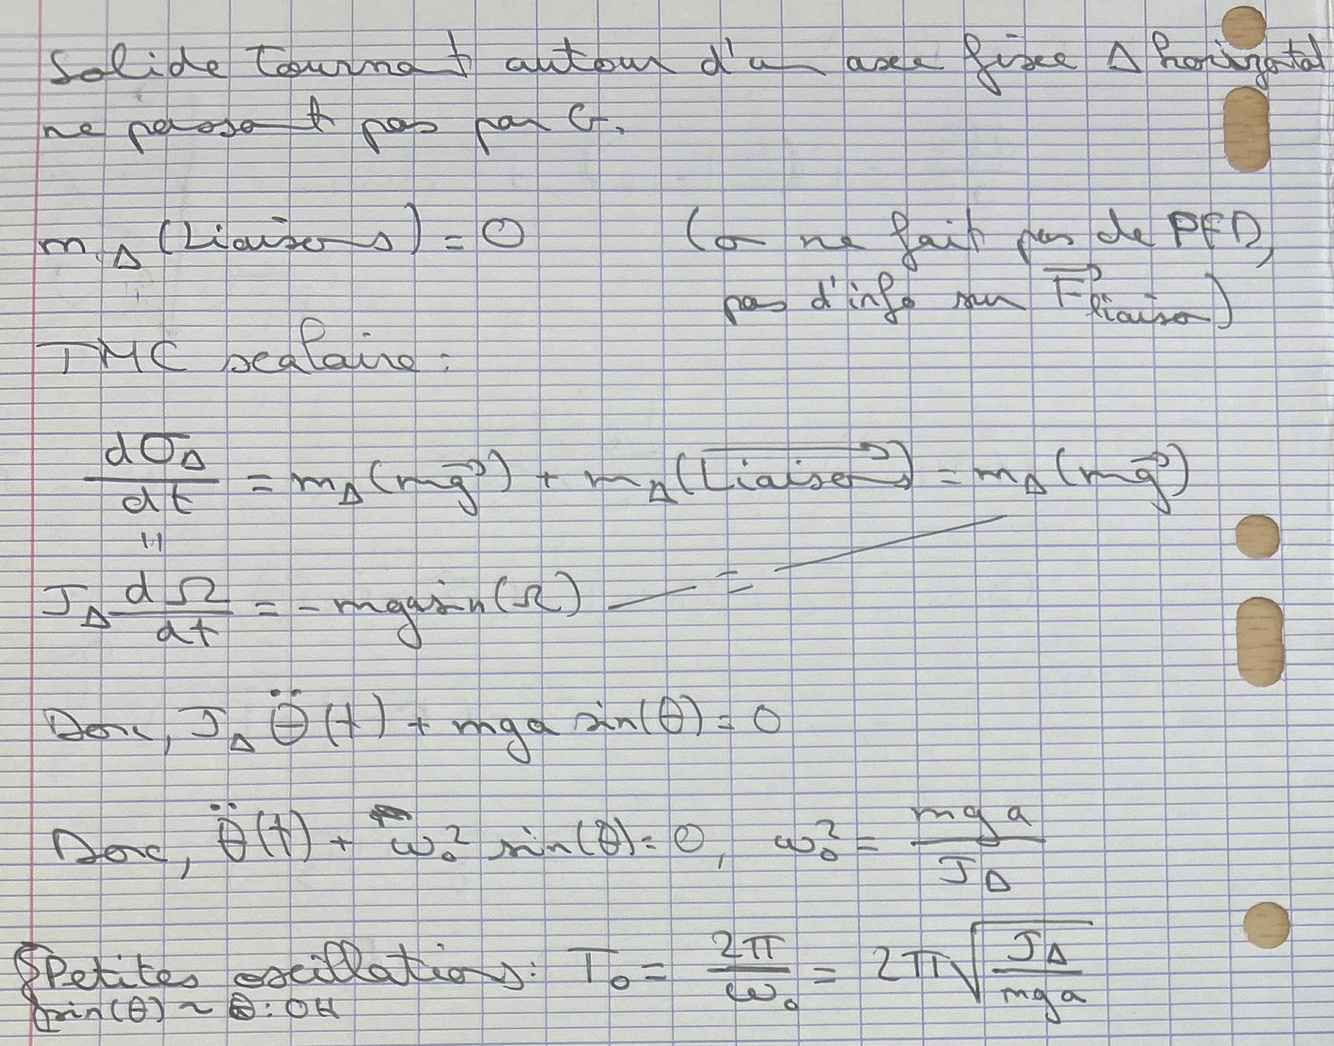 Solide tournant autour d'un axe fixe Δ horizontal
ne passant pas par G.
m_Δ (Liaisons) = 0 (on ne fait pas de PFD,
pas d'info sur F⃗_liaison)
TMC scalaire :
dσ_Δ/dt = m_Δ(mg⃗) + m_Δ(Liaison⃗) = m_Δ(mg⃗)
J_Δ dΩ/dt = - mga sin(Ω) =
Donc, J_Δ θ̈(t) + mga sin(θ) = 0
Donc, θ̈(t) + ω₀² sin(θ) = 0, ω₀² = mga/J_Δ
Petites oscillations : T₀ = 2π/ω₀ = 2π√(J_Δ/mga)
sin(θ) ~ θ : OH